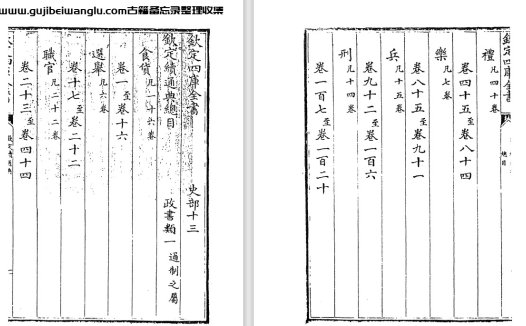 www.gujibeiwanglu.com古籍备忘录整理收集
欽定四庫全書 史部十三
欽定續通典總目 政書類一 通制之屬
食貨 凡一十六卷
卷一至卷十六
選舉 凡六卷
卷十七至卷二十二
職官 凡二十二卷
卷二十三至卷四十四
欽定四庫全書
總目
禮 凡四十卷
卷四十五至卷八十四
樂 凡七卷
卷八十五至卷九十一
兵 凡十五卷
卷九十二至卷一百六
刑 凡十四卷
卷一百七至卷一百二十